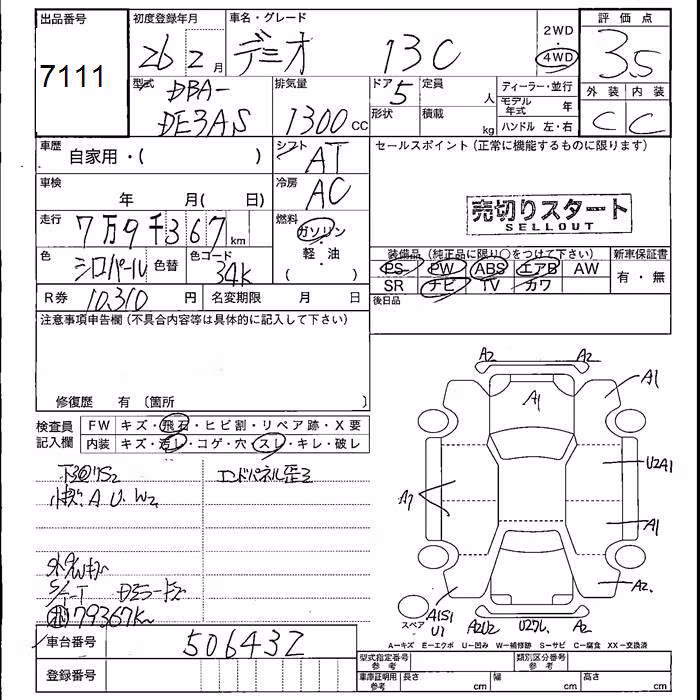 出品番号 初度登録年月 車名・グレード 評価点
7111 26 2月 デミオ 13C 2WD 4WD 3.5
型式 排気量 ドア 定員 ディーラー・並行 外装 内装
DBA- 5 人 モデル年式 年 C C
DE3AS 1300cc 形状 積載 kg ハンドル 左・右
車歴 シフト セールスポイント(正常に機能するものに限ります)
自家用・( ) AT
車検 冷房
年 月( 日) AC 売切りスタート
SELLOUT
走行 燃料
7万9千367km ガソリン・軽・油 ( )
装備品(純正品に限り○をつけて下さい) 新車保証書
色 シロパール 色替 色コード 34K PS PW ABS エアB AW 有・無
SR ナビ TV カワ
R券 10,310円 名変期限 月 日 後日品
注意事項申告欄(不具合内容等は具体的に記入して下さい)
修復歴 有 〔箇所 〕
検査員記入欄 FW キズ・飛石・ヒビ割・リペア跡・X要
内装 キズ・汚レ・コゲ・穴・スレ・キレ・破レ
A2 A2
A1 A1
U2A1
A1
A2
A1S1 U1 A2U2 A2
スペア
下回りS2 エンドパネル歪ミ
小キズ A U W2
79367K
A−キズ E−エクボ U−凹み W−補修跡 S−サビ C−腐食 XX−交換済
車台番号 506432 型式指定番号 参考 類別区分番号 参考
登録番号 車庫証明用 参考 長さ cm 幅 cm 高さ cm